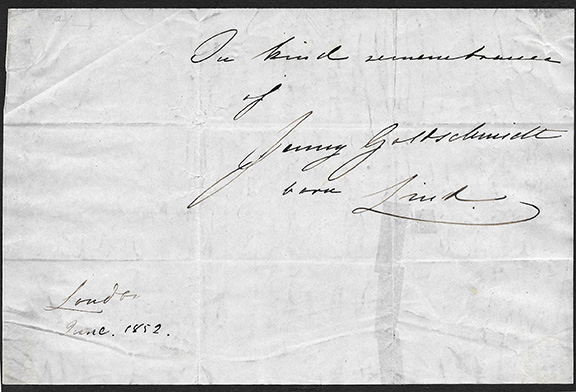 In kind remembrance
of
Jenny Goldschmidt
born Lind.
London
June. 1852.